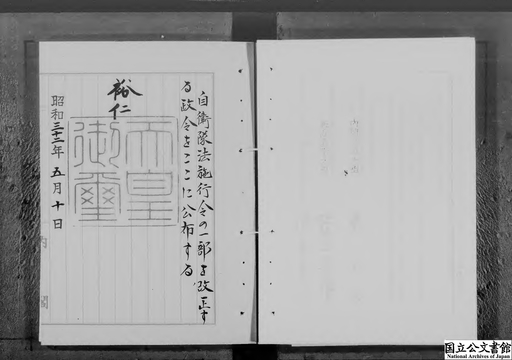 自衛隊法施行令の一部を改正す
る政令をここに公布する
裕仁
天皇
御璽
昭和三十二年五月十日
内閣
国立公文書館
National Archives of Japan